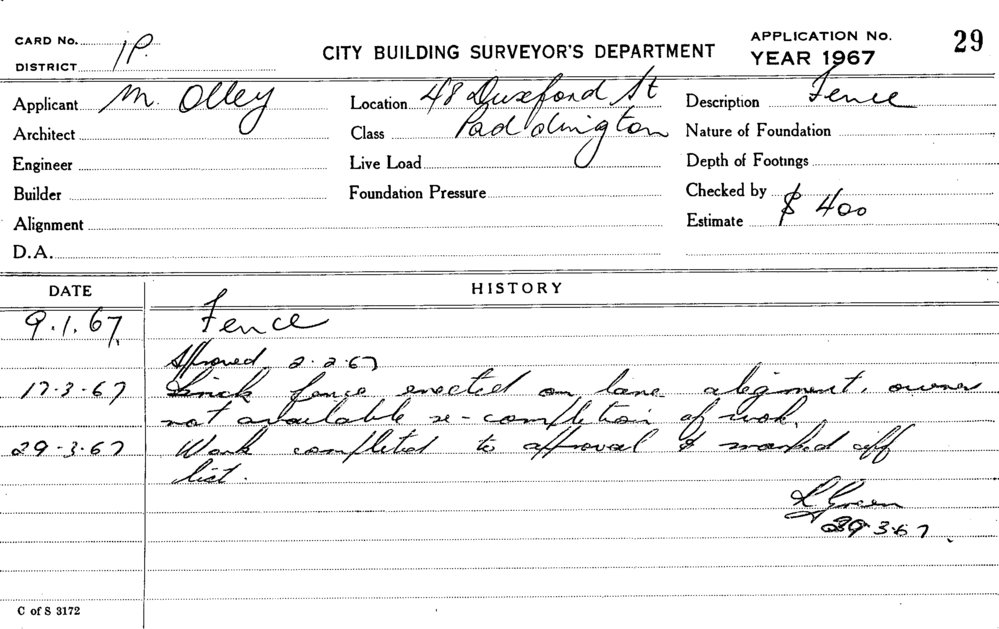 CARD No. 1P.
DISTRICT
CITY BUILDING SURVEYOR'S DEPARTMENT
APPLICATION No. 29
YEAR 1967
Applicant M. Olley
Location 48 Duxford St
Description Fence
Architect
Class Paddington
Nature of Foundation
Engineer
Live Load
Depth of Footings
Builder
Foundation Pressure
Checked by
Alignment
Estimate $ 400
D.A.
DATE HISTORY
9.1.67. Fence
Approved 2-2-67
17-3-67 Brick fence erected on lane alignment, owner
not available re-completion of work.
29-3-67 Work completed to approval & marked off
list.
L Green
29-3-67.
C of S 3172